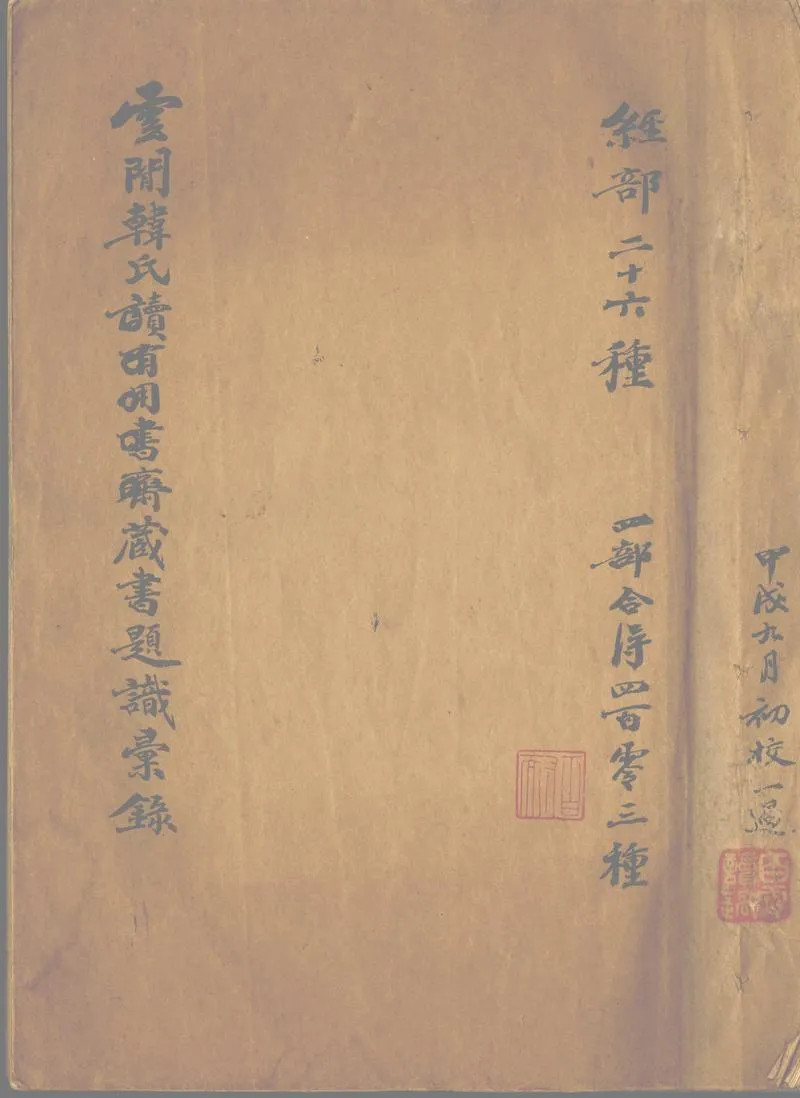 甲戌九月初校一過
經部二十六種 四部合得四百零三種
雲閒韓氏讀有用書齋藏書題識彙錄